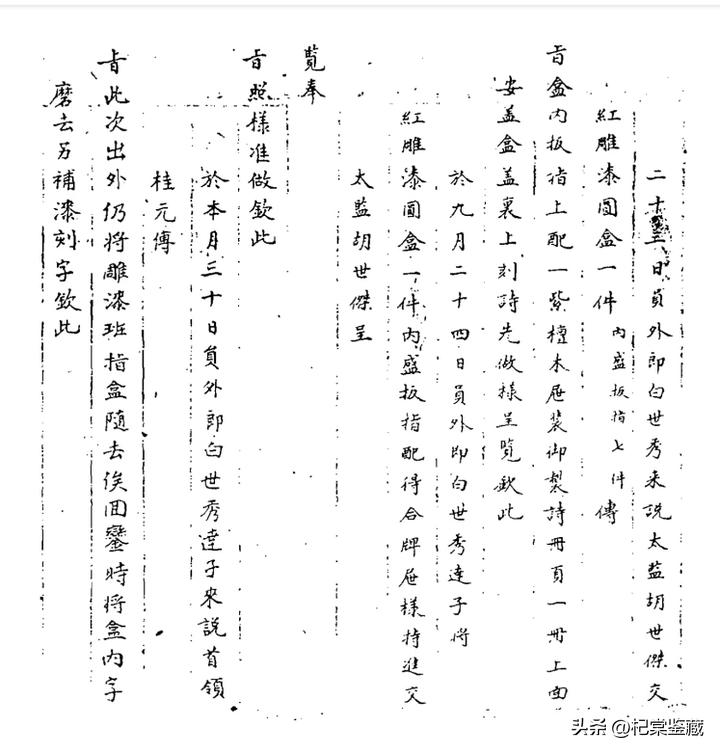 二十三日員外郎白世秀來說太監胡世傑交
紅雕漆圓盒一件內盛扳指七件傳
旨盒內扳指上配一紫檀木屜裝御製詩冊頁一冊上面
安蓋盒蓋裏上刻詩先做樣呈覽欽此
於九月二十四日員外郎白世秀達子將
紅雕漆圓盒一件內盛扳指配得合牌屜樣持進交
太監胡世傑呈
覽奉
旨照樣准做欽此
於本月三十日員外郎白世秀達子來說首領
桂元傳
旨此次出外仍將雕漆班指盒隨去俟回鑾時將盒內字
磨去另補漆刻字欽此
头条 @杞棠鉴藏